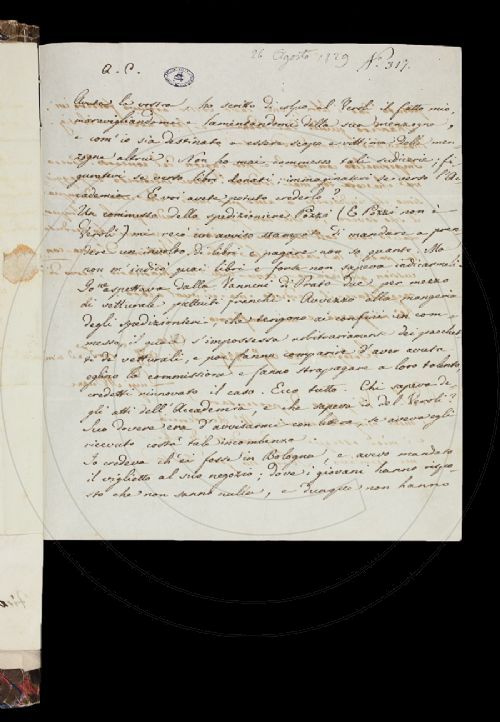 26 Agosto 1829 N.° 317.
A. C.
Avuta la vostra, ho scritto di colpo al Veroli il fatto mio,
maravigliandomi e lamentandomi della sua menzogna,
e com'io sia destinato a essere scopo e vittima delle men
zogne altrui. Non ho mai commesso tali sudicerie, fi
guratevi se verso libri donati; immaginatevi se verso l'Ac
cademia. E voi avete potuto crederlo?
Un commesso della spedizioniere Pozzi (E Pozzi non è
Veroli) mi recò un avviso stampato di mandare a pren
dere un involto di libri e pagare non so quanto. Ma
non m'indicò quai libri e forse non sapeva indicarmeli.
Io ne aspettava dalla Vannini di Prato due per mezzo
di vetturali, pattuiti franchi. Avvezzo alla mangeria
degli spedizionieri che tengono ai confini un com
messo, il quale s'impossessa arbitrariamente dei pacchet
ti de' vetturali, e poi fanno comparire d'aver avuta
eglino la commissione e fanno strapagare a loro talento,
credetti rinnovato il caso. Ecco tutto. Chi sapeva de
gli atti dell'Accademia, e che sapeva io del Veroli?
Suo dovere era d'avvisarmi con lettera, se aveva egli
ricevuto costà tale incombenza.
Io credeva ch'ei fosse in Bologna, e avevo mandato
il viglietto al suo negozio; dove i giovani hanno rispo-
sto che non sanno nulla, e dunque non hanno